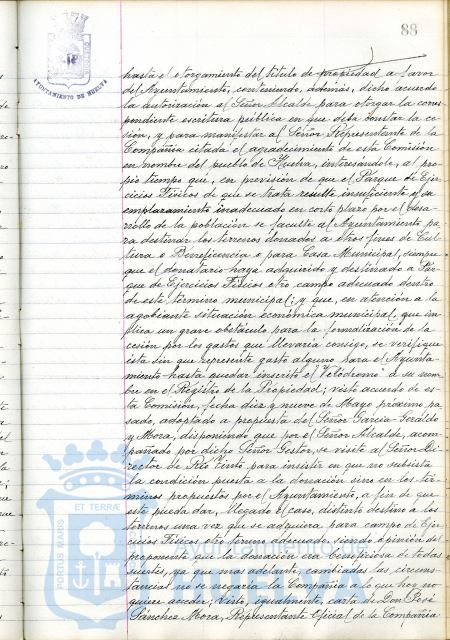 88
AYUNTAMIENTO DE HUELVA
hasta el otorgamiento del título de propiedad a favor
del Ayuntamiento, conteniendo, además, dicho acuerdo
la autorización al Señor Alcalde para otorgar la corres-
pondiente escritura pública en que deba constar la ce-
sión, y para manifestar al Señor Representante de la
Compañía citada el agradecimiento de esta Comisión
en nombre del pueblo de Huelva, interesándole, al pro-
pio tiempo que, en previsión de que el Parque de Ejer-
cicios Físicos de que se trata resulte insuficiente y su
emplazamiento inadecuado en corto plazo por el desa-
rrollo de la población se faculte al Ayuntamiento pa-
ra destinar los terrenos donados a otros fines de Cul-
tura o Beneficencia o para Casa Municipal, siempre
que el donatario haya adquirido y destinado a Par-
que de Ejercicios Físicos otro campo adecuado dentro
de este término municipal; y que, en atención a la
agobiante situación económica municipal, que im-
plica un grave obstáculo para la formalización de la
cesión por los gastos que llevaría consigo, se verifique
ésta sin que represente gasto alguno para el Ayunta-
miento hasta quedar inscrito el "Velódromo" a su nom-
bre en el Registro de la Propiedad; visto acuerdo de es-
ta Comisión, fecha diez y nueve de Mayo próximo pa-
sado, adoptado a propuesta del Señor García-Geraldo
y Mora, disponiendo que por el Señor Alcalde, acom-
pañado por dicho Señor Gestor, se visite al Señor Di-
rector de Río Tinto para insistir en que no subsista
la condición puesta a la donación sino en los tér-
minos propuestos por el Ayuntamiento, a fin de que
éste pueda dar, llegado el caso, distinto destino a los
terrenos una vez que se adquiera para campo de Ejer-
cicios Físicos otro terreno adecuado, siendo opinión del
proponente que la donación era beneficiosa de todas
suertes, ya que más adelante, cambiadas las circuns-
tancias no se negaría la Compañía a lo que hoy no
quiere acceder; Visto, igualmente, carta de Don José
Sánchez Mora, Representante Oficial de la Compañía
PORTUS MARIS ET TERRAE